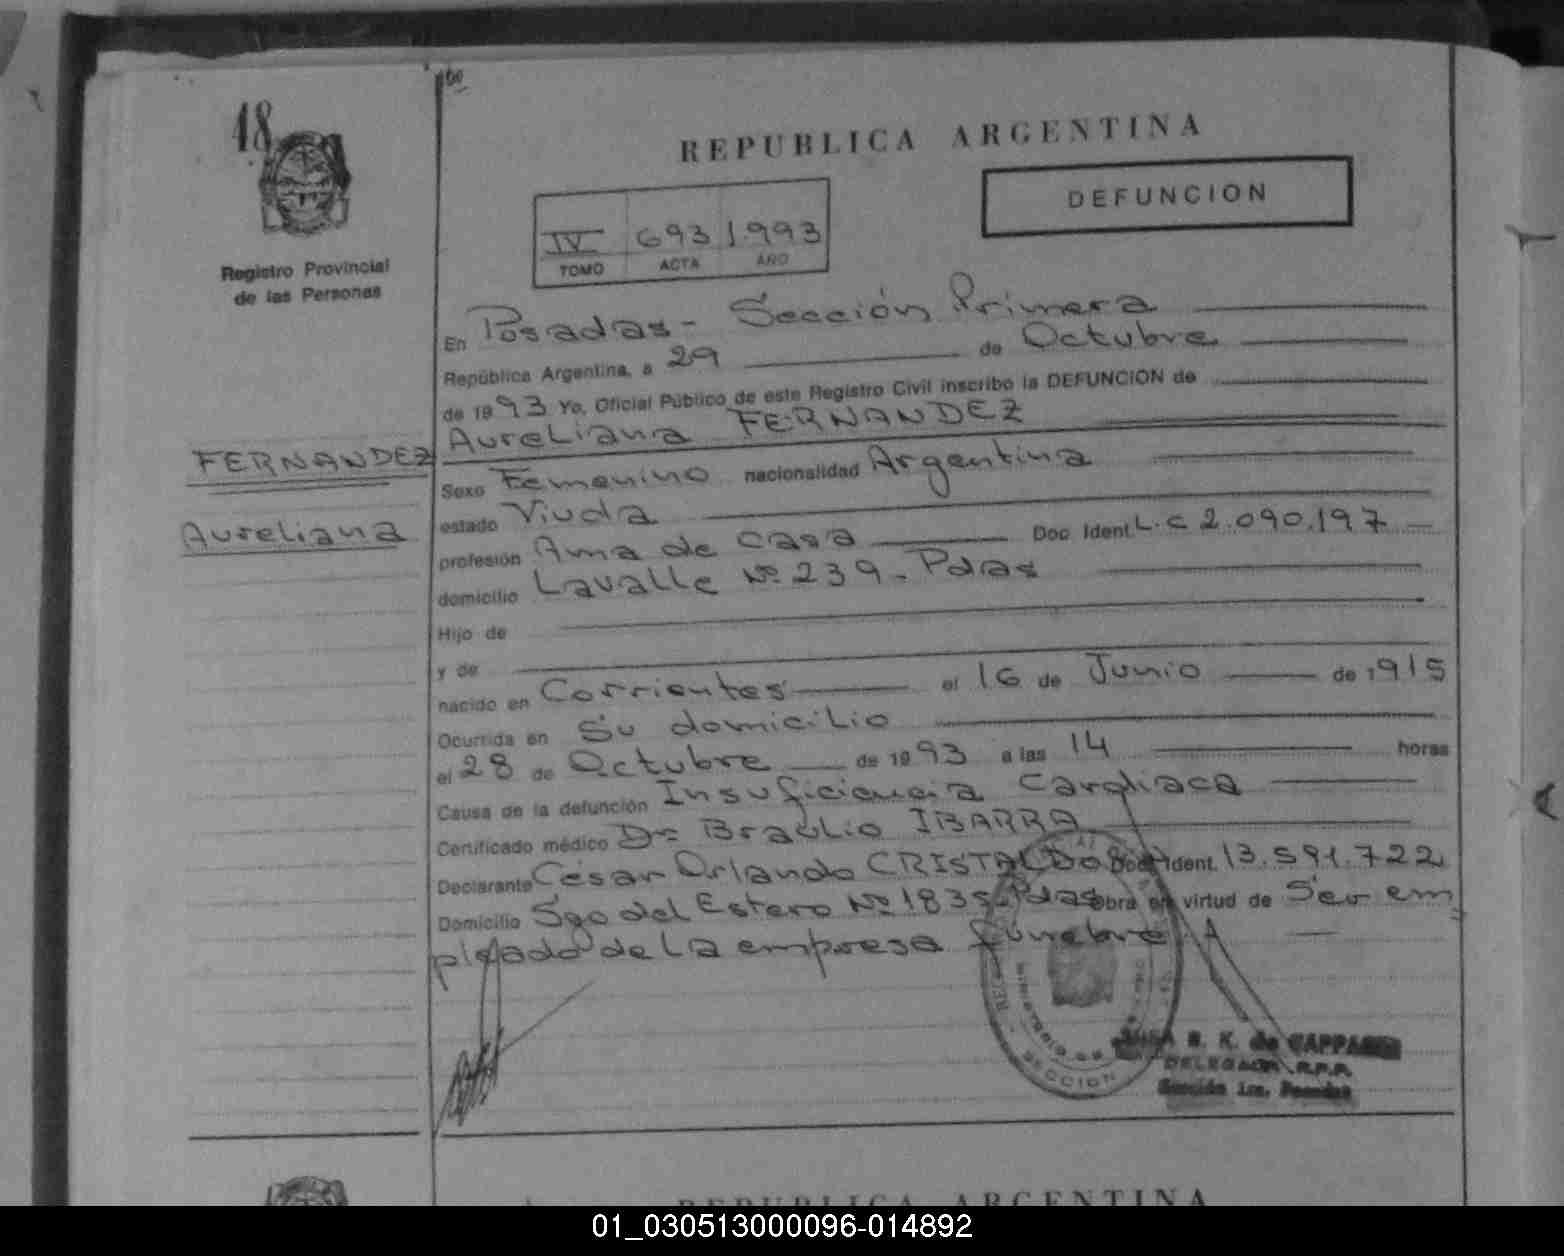 18
Registro Provincial
de las Personas
FERNANDEZ
Aureliana
REPUBLICA ARGENTINA
DEFUNCION
IV 693 1.993
TOMO ACTA AÑO
En Posadas - Sección Primera
República Argentina, a 29 de Octubre
de 1993 Yo, Oficial Público de este Registro Civil inscribo la DEFUNCION de
Aureliana FERNANDEZ
Sexo Femenino nacionalidad Argentina
estado Viuda
profesión Ama de casa Doc Ident. L.C 2.090.197
domicilio Lavalle Nº 239 - Pdas
Hijo de
y de
nacido en Corrientes el 16 de Junio de 1915
Ocurrida en Su domicilio
el 28 de Octubre de 1993 a las 14 horas
Causa de la defunción Insuficiencia Cardiaca
Certificado médico Dr Braulio IBARRA
Declarante César Orlando CRISTALDO Doc. Ident. 13.591.722
Domicilio Sgo del Estero Nº 1835 - Pdas Obra en virtud de Ser em
pleado de La empresa funebre
SECCION
R. K. de
DELEGADA R.P.P.
Sección 1ra. Posadas
REPUBLICA ARGENTINA
01_030513000096-014892